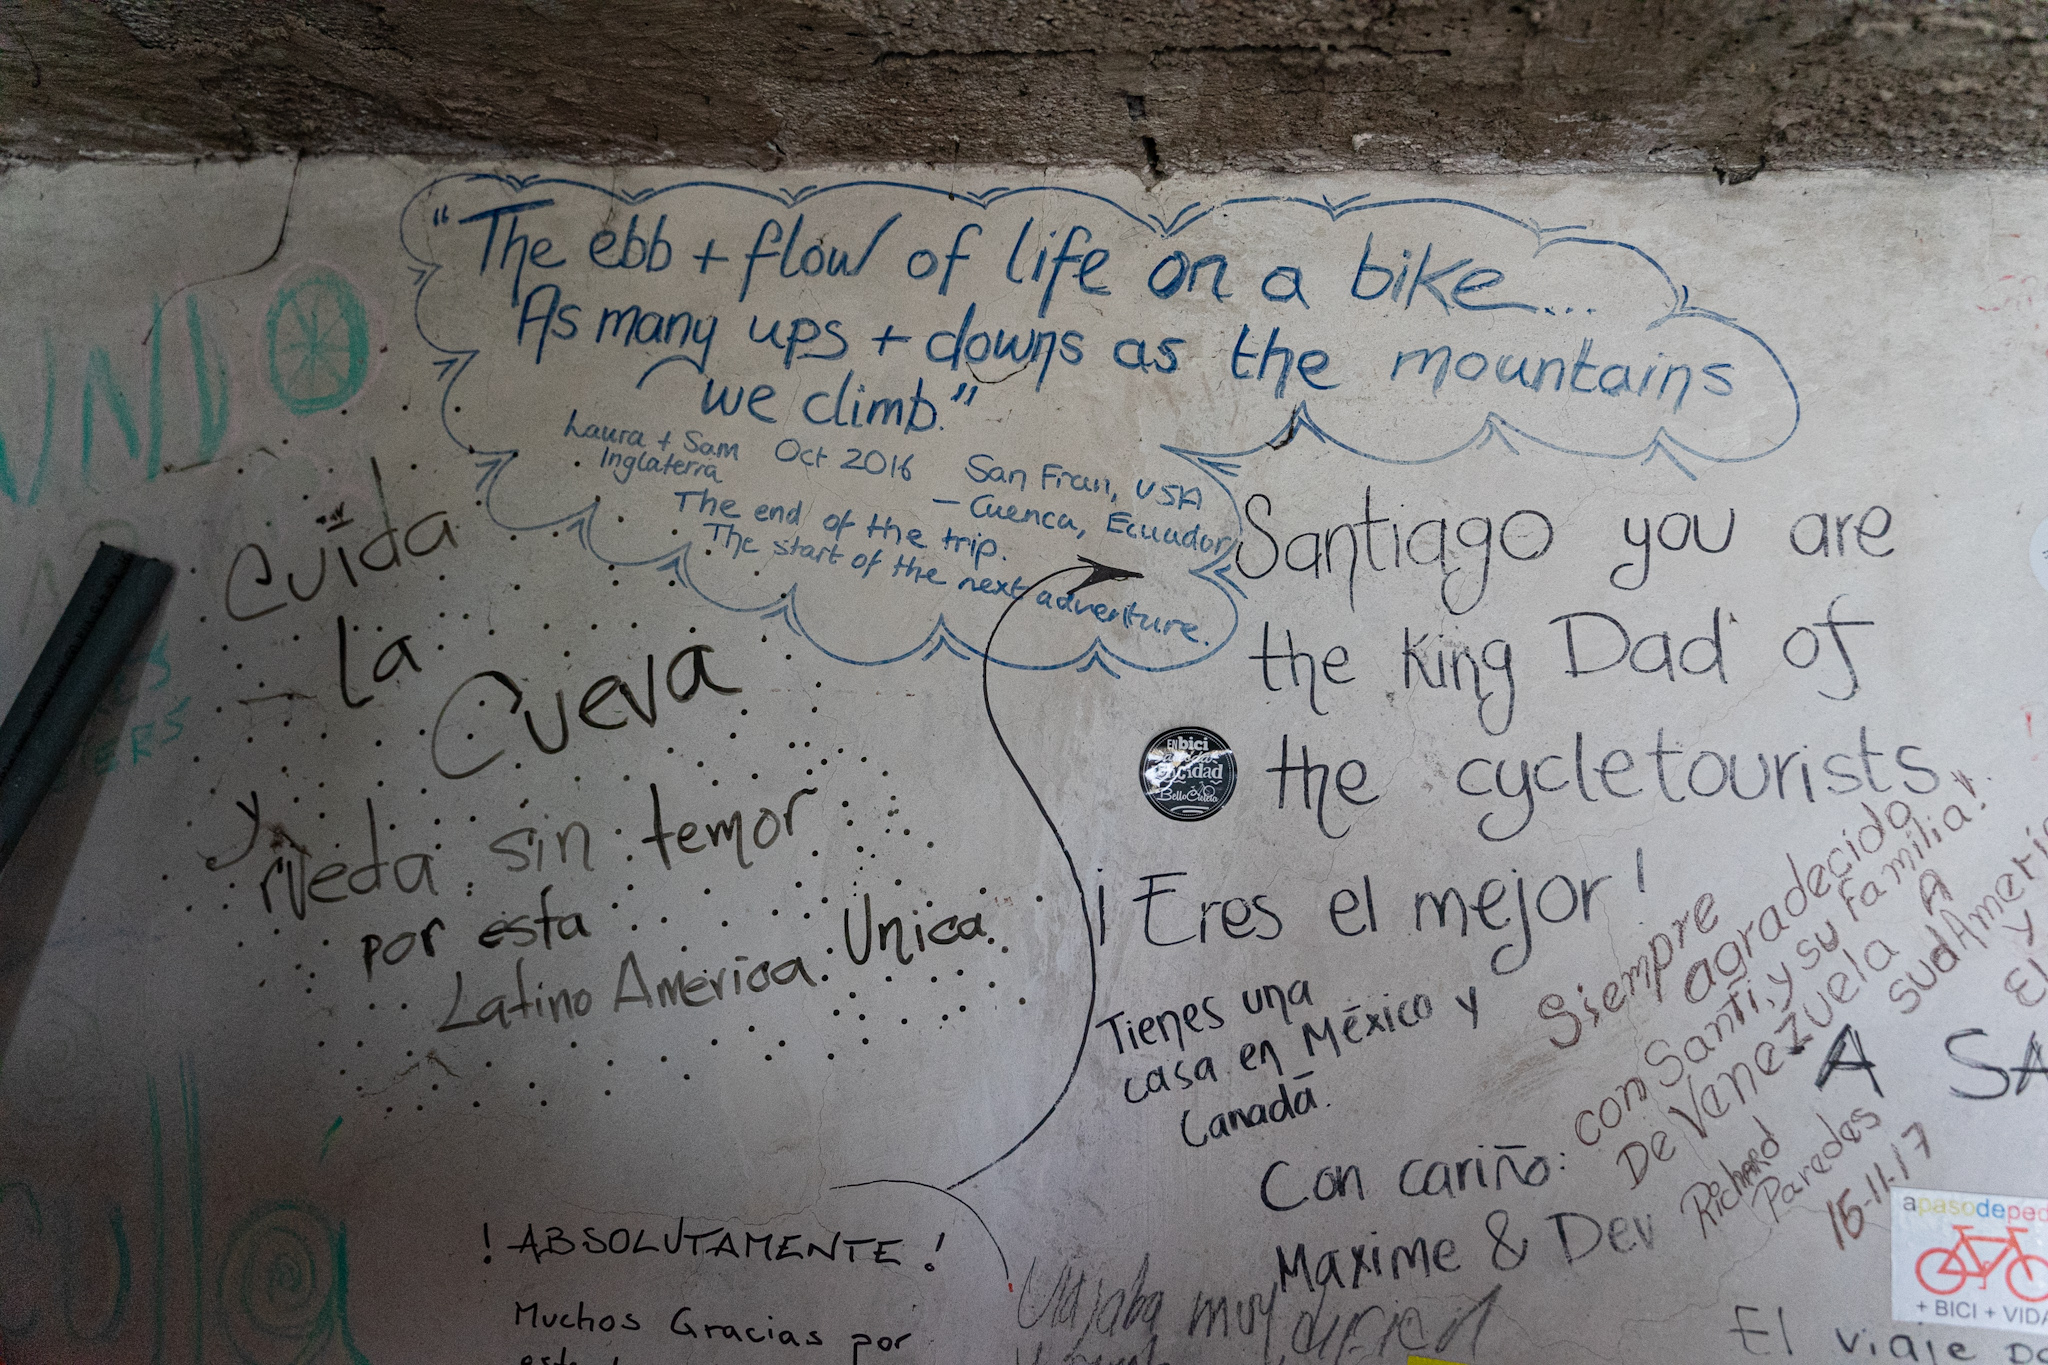 "The ebb + flow of life on a bike...
As many ups + downs as the mountains
we climb."
Laura + Sam
Inglaterra
Oct 2016
San Fran, USA
– Cuenca, Ecuador
The end of the trip.
The start of the next adventure.
UNDO
Cuida
La
Cueva
y
rueda sin temor
por esta
Latino America Unica.
Santiago you are
the King Dad of
the cycletourists
¡Eres el mejor!
Tienes una
casa en México y
Canadá.
Con cariño:
Maxime & Dev
EN bici
BelloCicleto
Siempre
agradecido
con Santi, y su familia!
De Venezuela A
sudAmeri
y
El
Richard
Paredes
15-11-17
A SA
! ABSOLUTAMENTE !
Muchos Gracias por
Viajaba muy dificil
apasodeped
+ BICI + VIDA
El viaje